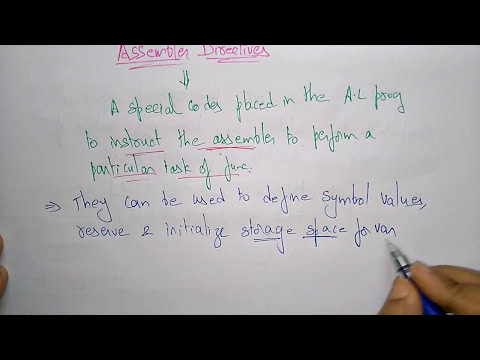 Assembler Directives
⇓
A special codes placed in the A.L prog
to instruct the assembler to perform a
particular task of func.
⇒ They can be used to define symbol values,
reserve & initialize storage space for var